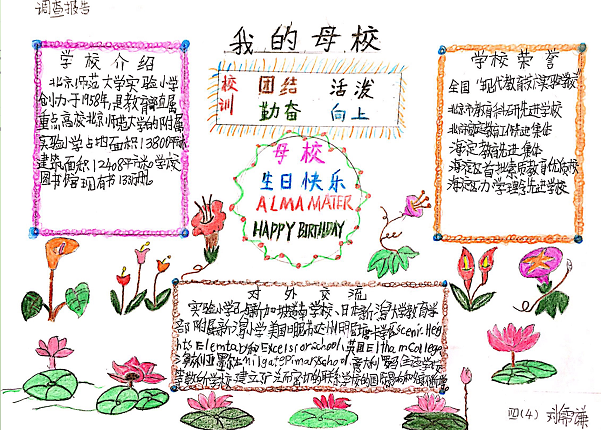 调查报告
我的母校
学校介绍
北京师范大学实验小学
创办于1958年,是教育部直属
重点高校北京师范大学的附属
实验小学占地面积13800平方米
建筑面积12408平方米。学校
图书馆现有书
校训
团结 活泼
勤奋 向上
学校荣誉
全国"现代教育技术实验学校"
北京市教育科研先进学校
北京市德育工作先进集体
海淀教育先进集体
海淀区首批素质教育优质校
海淀区办学理先进学校
母校
生日快乐
ALMA MATER
HAPPY BIRTHDAY
对外交流
实验小学与新加坡 学校、日本新潟大学教育学
部附属新潟小学、美国 Scenic Heig
hts Elemtary Excelsior school, 英国Eltham College
PrimarySchool,
等 学校建立了 的联系
四(4) 刘常谦